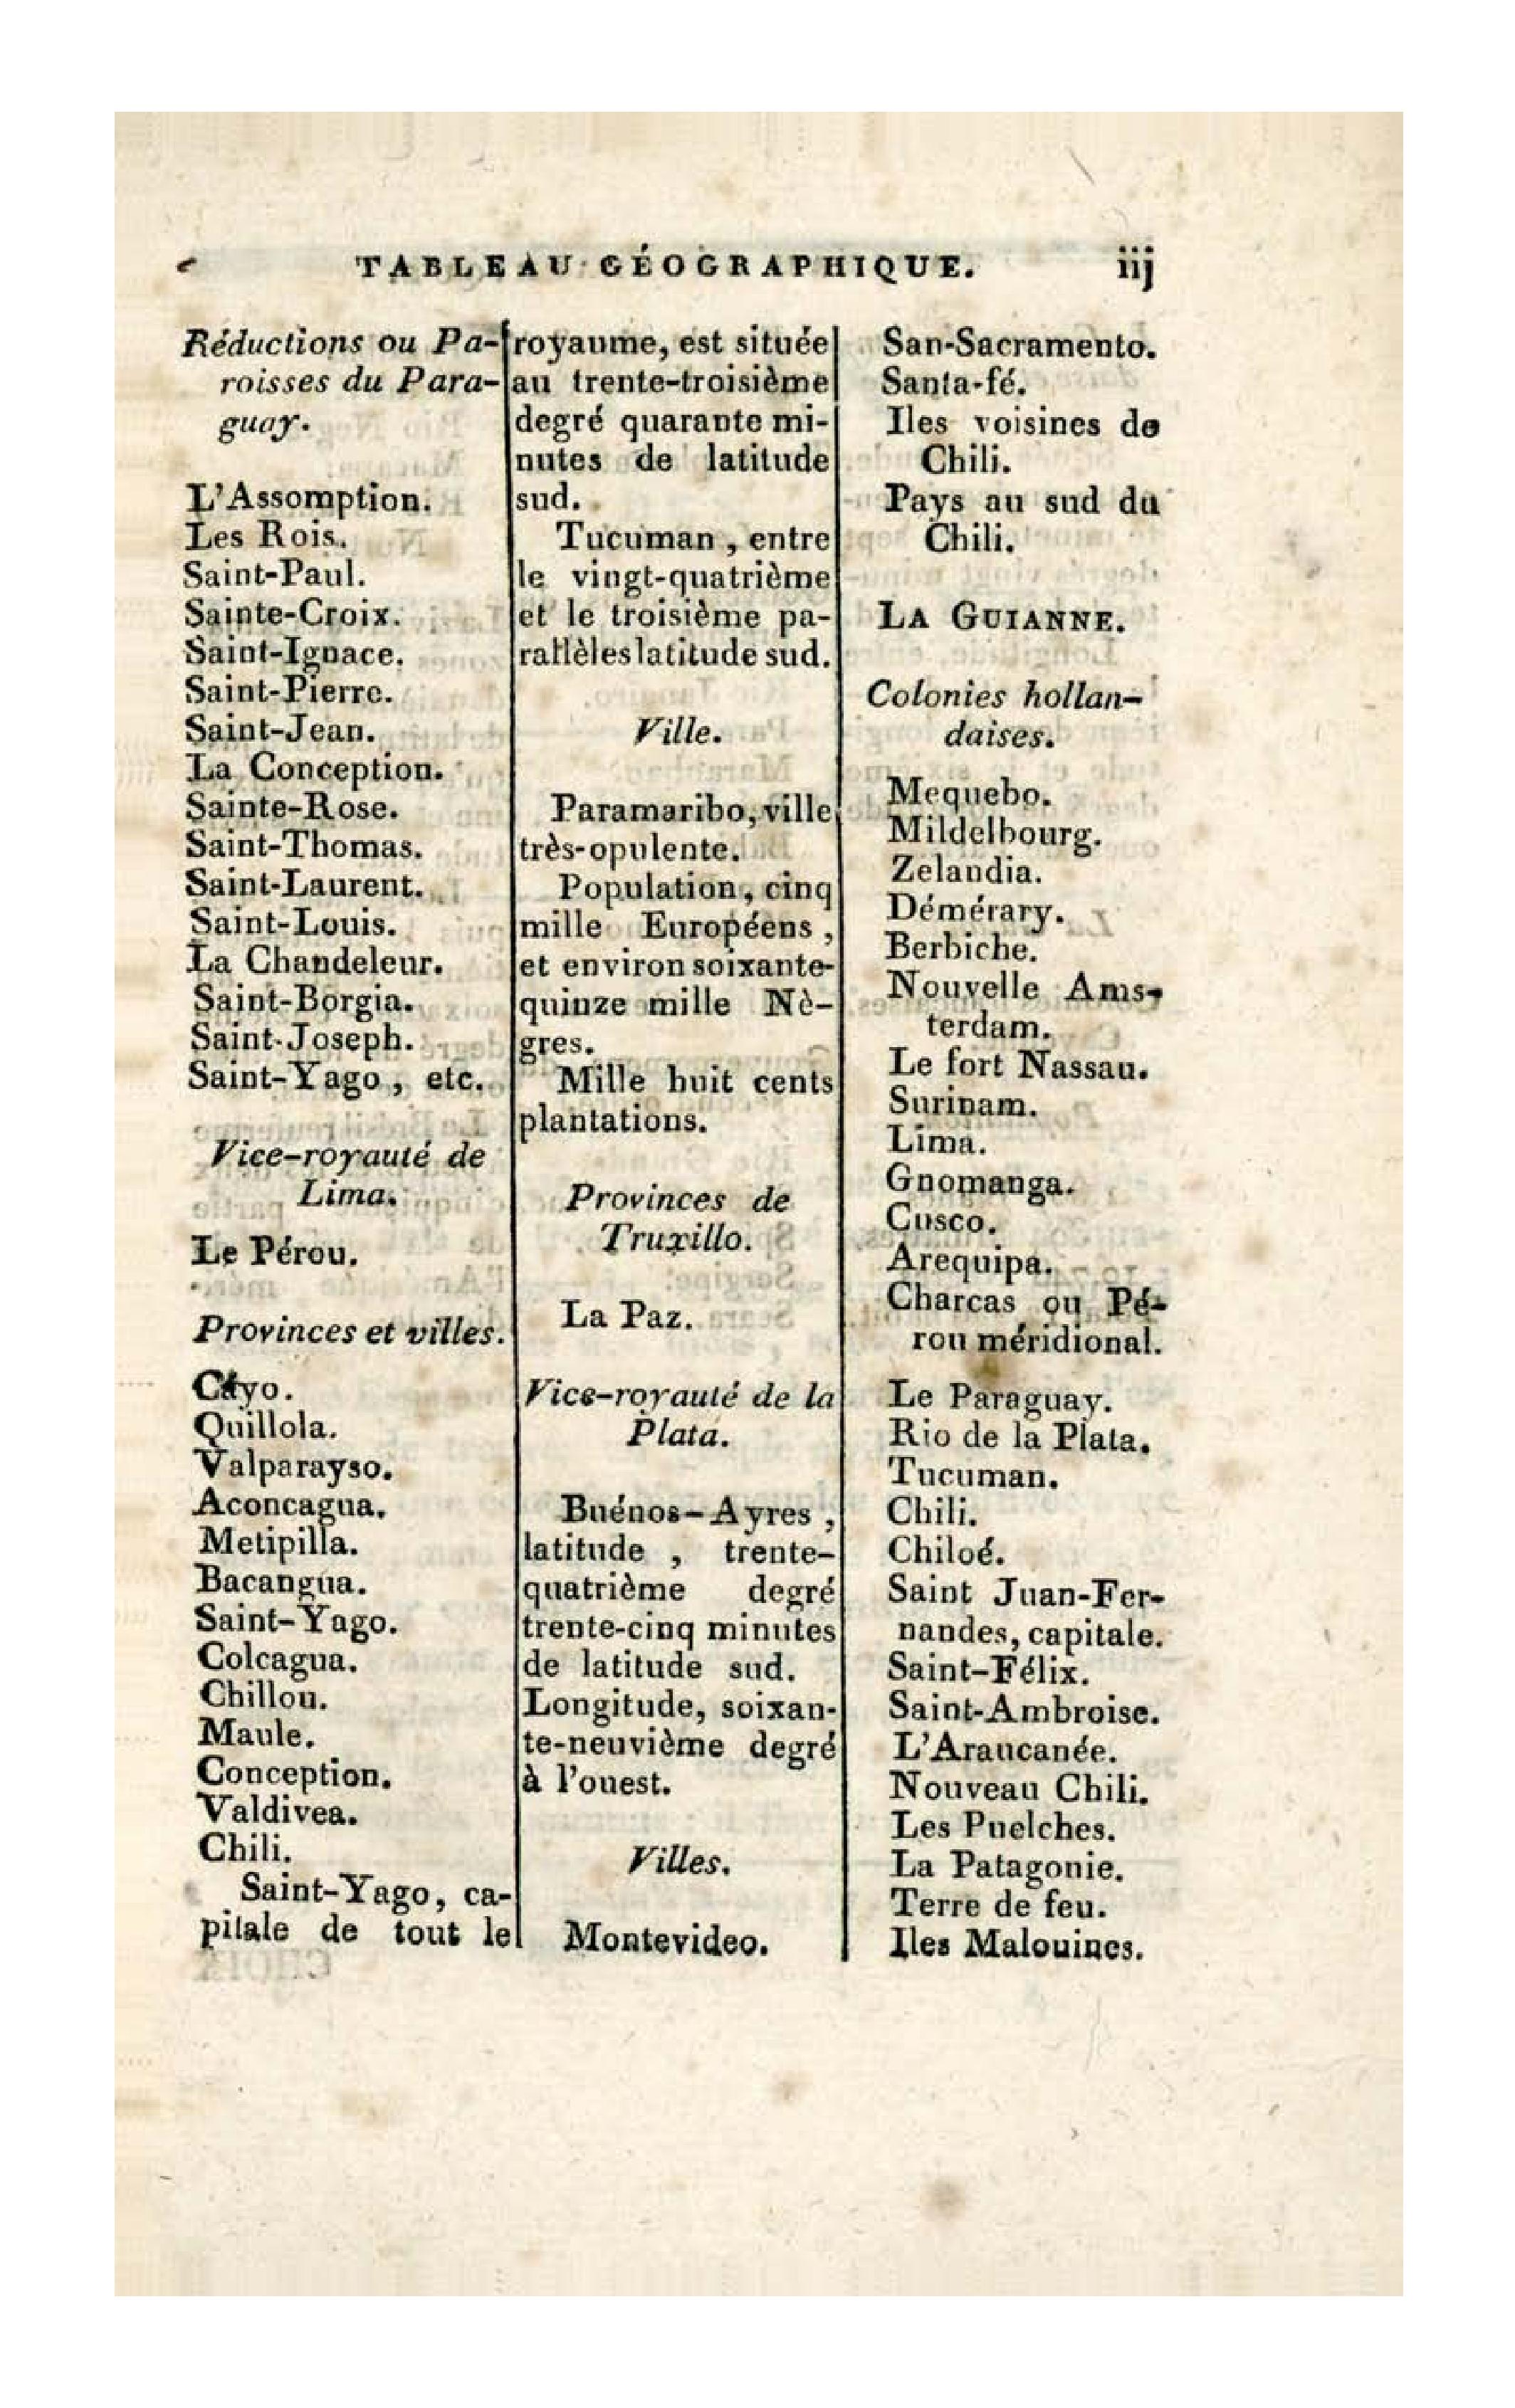 TABLEAU GÉOGRAPHIQUE. iij
Réductions ou Pa-
roisses du Para-
guay.
L'Assomption.
Les Rois.
Saint-Paul.
Sainte-Croix.
Saint-Ignace.
Saint-Pierre.
Saint-Jean.
La Conception.
Sainte-Rose.
Saint-Thomas.
Saint-Laurent.
Saint-Louis.
La Chandeleur.
Saint-Borgia.
Saint-Joseph.
Saint-Yago, etc.
Vice-royauté de
Lima.
Le Pérou.
Provinces et villes.
Cayo.
Quillola.
Valparayso.
Aconcagua.
Metipilla.
Bacangua.
Saint-Yago.
Colcagua.
Chillou.
Maule.
Conception.
Valdivea.
Chili.
Saint-Yago, ca-
pitale de tout le
royaume, est située
au trente-troisième
degré quarante mi-
nutes de latitude
sud.
Tucuman, entre
le vingt-quatrième
et le troisième pa-
rallèles latitude sud.
Ville.
Paramaribo, ville
très-opulente.
Population, cinq
mille Européens,
et environ soixante-
quinze mille Nè-
gres.
Mille huit cents
plantations.
Provinces de
Truxillo.
La Paz.
Vice-royauté de la
Plata.
Buénos-Ayres,
latitude, trente-
quatrième degré
trente-cinq minutes
de latitude sud.
Longitude, soixan-
te-neuvième degré
à l'ouest.
Villes.
Montevideo.
San-Sacramento.
Santa-fé.
Iles voisines de
Chili.
Pays au sud du
Chili.
LA GUIANNE.
Colonies hollan-
daises.
Mequebo.
Mildelbourg.
Zelandia.
Démérary.
Berbiche.
Nouvelle Ams-
terdam.
Le fort Nassau.
Surinam.
Lima.
Gnomanga.
Cusco.
Arequipa.
Charcas ou Pé-
rou méridional.
Le Paraguay.
Rio de la Plata.
Tucuman.
Chili.
Chiloé.
Saint Juan-Fer-
nandes, capitale.
Saint-Félix.
Saint-Ambroise.
L'Araucanée.
Nouveau Chili.
Les Puelches.
La Patagonie.
Terre de feu.
Iles Malouines.